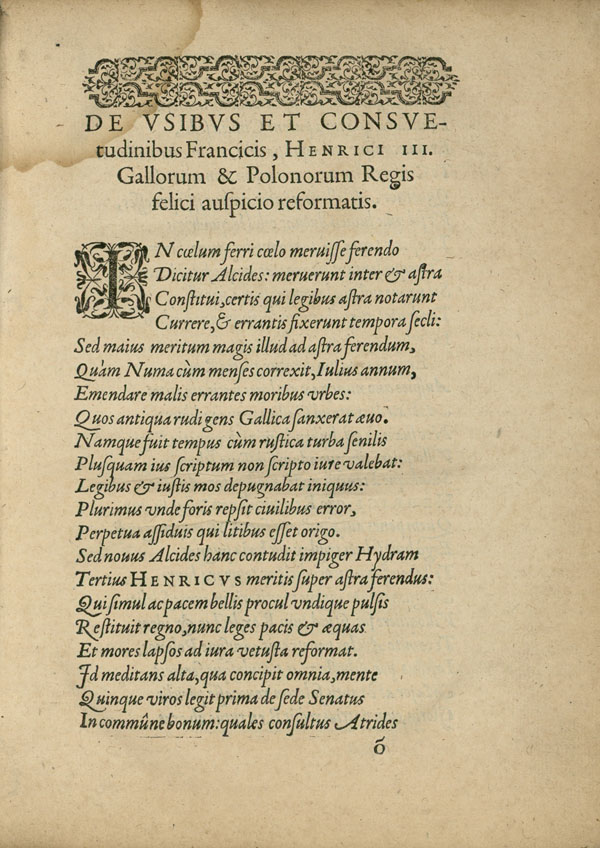 DE VSIBVS ET CONSVE-
tudinibus Francicis, HENRICI III.
Gallorum & Polonorum Regis
felici auſpicio reformatis.
IN cœlum ferri cœlo meruiſſe ferendo
Dicitur Alcides: meruerunt inter & aſtra
Conſtitui, certis qui legibus aſtra notarunt
Currere, & errantis fixerunt tempora ſecli:
Sed maius meritum magis illud ad aſtra ferendum,
Quàm Numa cùm menſes correxit, Iulius annum,
Emendare malis errantes moribus vrbes:
Quos antiqua rudi gens Gallica ſanxerat æuo.
Namque fuit tempus cùm ruſtica turba ſenilis
Pluſquam ius ſcriptum non ſcripto iure valebat:
Legibus & iuſtis mos depugnabat iniquus:
Plurimus vnde foris repſit ciuilibus error,
Perpetua aſſiduis qui litibus eſſet origo.
Sed nouus Alcides hanc contudit impiger Hydram
Tertius HENRICVS meritis ſuper aſtra ferendus:
Qui ſimul ac pacem bellis procul vndique pulſis
Reſtituit regno, nunc leges pacis & æquas
Et mores lapſos ad iura vetuſta reformat.
Id meditans alta, qua concipit omnia, mente
Quinque viros legit prima de ſede Senatus
In commûne bonum: quales conſultus Atrides
õ